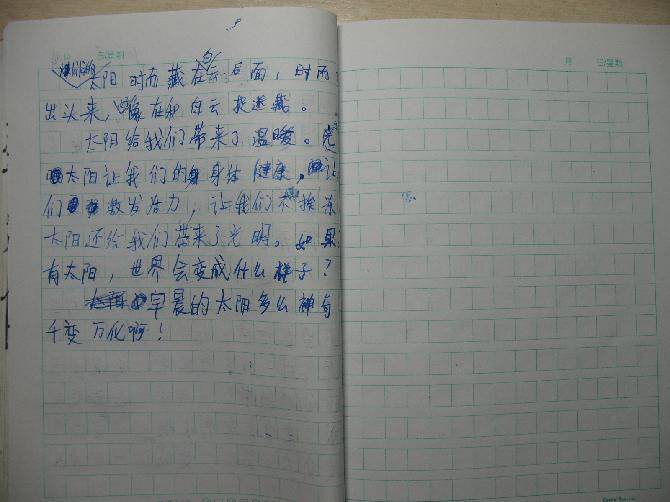 月 日 星期
太阳时而藏在白云后面，时而
出头来，像在和白云捉迷藏。
太阳给我们带来了温暖。
太阳让我们的身体健康，让
们焕发活力，让我们不挨冻
太阳还给我们带来了光明。如果
有太阳，世界会变成什么样子？
早晨的太阳多么神奇
千变万化啊！